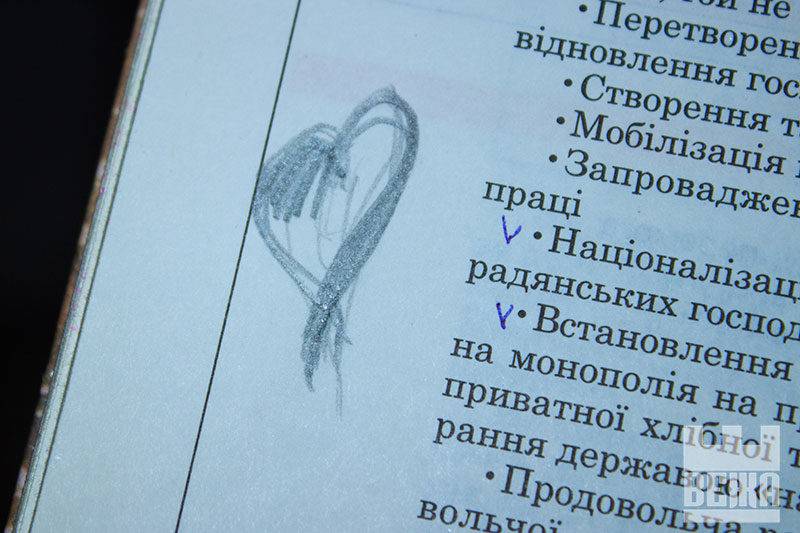 той не
• Перетворен
відновлення гос
• Створення т
• Мобілізація
• Запроваджен
праці
v • Націоналізаці
радянських господ
v • Встановлення
на монополія на п
приватної хлібної т
рання державою «на
• Продовольча
вольчої
ВЕЖА